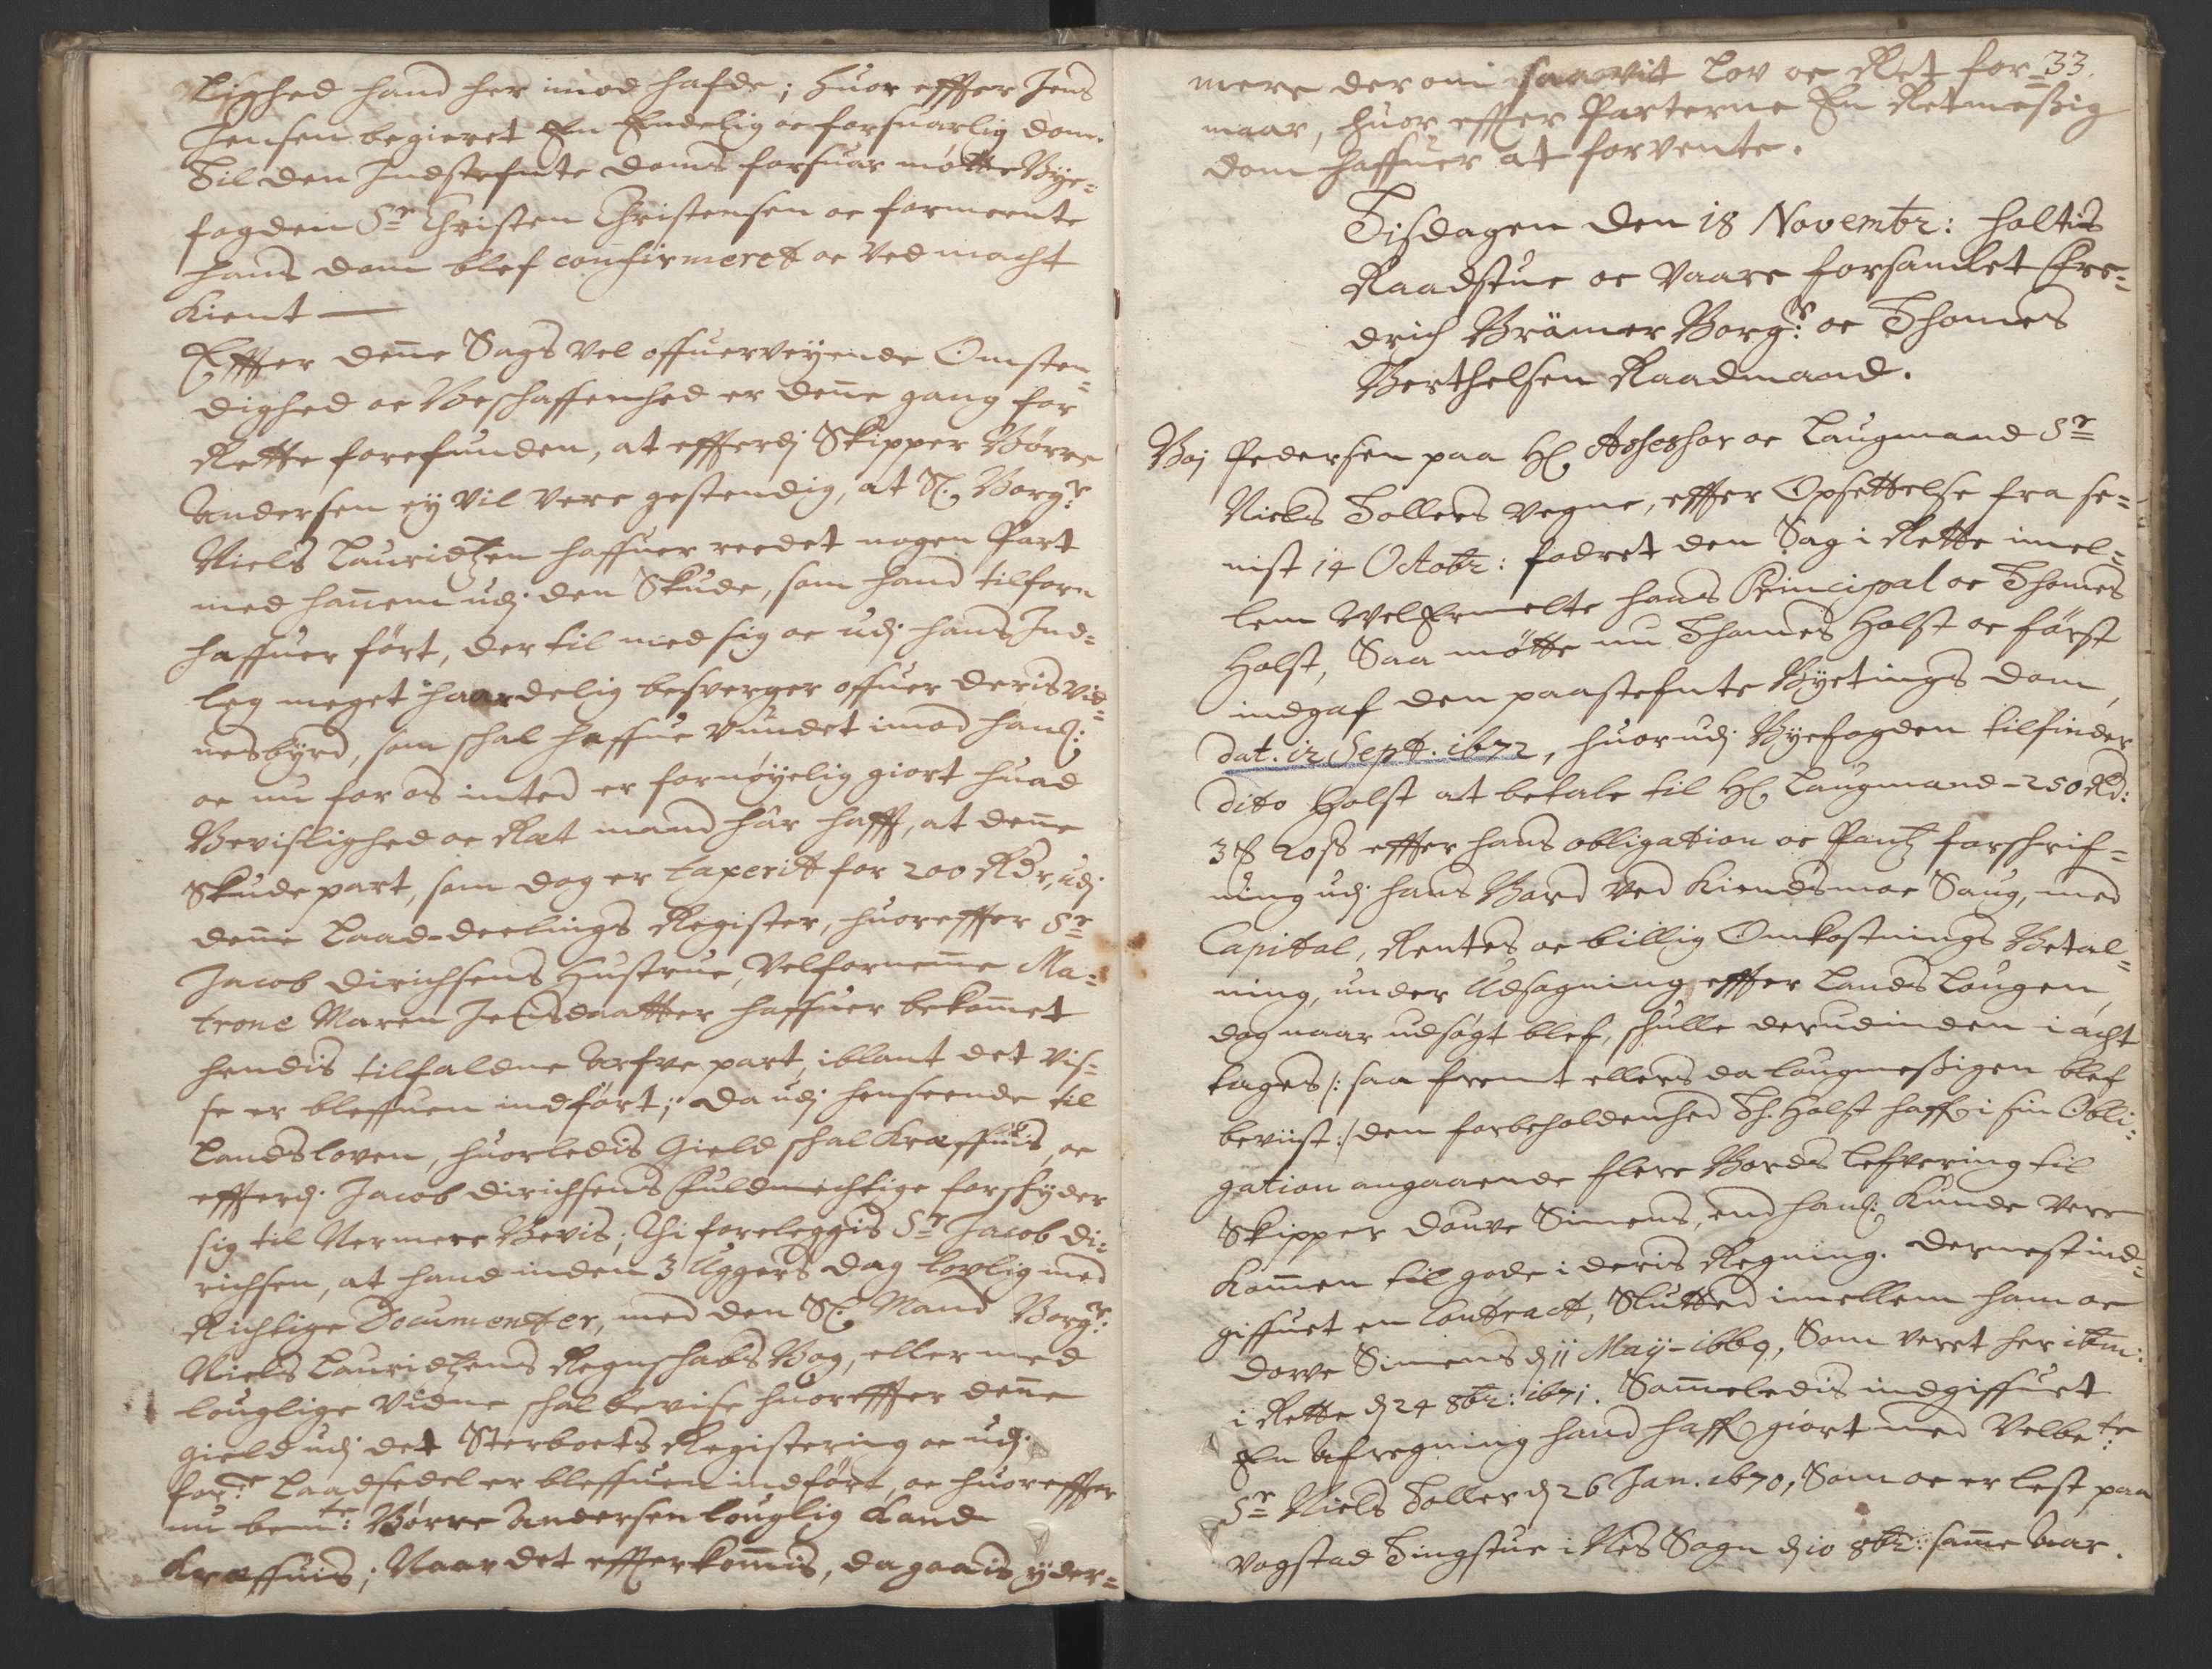 lighed hand her imod hafde; huor effter Jens
Jensen begieret En Endelig oc forsuarlig dom.
Til den Indstefnte doms forsuar møtte Bye-
fogden Sr Christen Christensen oc formeente
hans dom blef confirmeret oc ved macht
kient —
Effter denne Sags vel offuerveyende Omsten-
dighed oc Beschaffenhed er denne gang for
Rette forefunden, at effterdj Skipper Børre
Andersen ey vil vere gestendig, at Sl. Borgr:
Niels Lauridtzen haffuer reedet nogen Part
med hannem udj den Skude, som hand tilforn
haffuer ført, der til med sig oc udj hans Ind-
leg meget haardelig besverger offuer deris vid-
nesbyrd, som schal haffue vundet imod hanß:
oc nu for os inted er fornøyelig giort huad
Bevislighed oc Ræt mand hår hafft, at denne
Skude part, som dog er taxeritt for 200 Rdr, udj
denne Laad-deelings Register, huoreffter Sr
Jacob Dirichsens Hustrue, Velfornemme Ma-
trone Maren Jensdaatter haffuer bekommet
hendis tilfaldne Arfve part, iblant det vis-
se er bleffuen indført; Da udj henseende til
Landsloven, huorledis Gield schal Kræffuis, oc
effterdj Jacob Dirichsens Fuldmechtige forskyder
sig til Nermere Bevis; Thi foreleggis Sr Jacob Di-
richsen, at hand inden 3 Uggers dag lovlig med
Richtige Documenter, med den Sl. Mand Borgr:
Niels Lauridtzens Regnschabs Bog, eller med
louglige Vidne schal bevise huoreffter denne
gield udj det Sterboets Registering oc udj
forne Laadsedel er bleffuen indført, oc huoreffter
nu bemte: Børre Andersen louglig kand
kræffuis; Naar det effterkommis, da gaais yder-
33.
mere der om saavit Lov oc Ret for-
maar, huor effter Parterne En Retmessig
dom haffuer at forvente.
Tisdagen den 18 Novembr: holtis
Raadstue oc vaare forsamlet Fre-
drich Brämer Borgr: oc Thomes
Berthelsen Raadmand.
Boj Pedersen paa Hl Assessor oc Laugmand Sr
Niels Tollers vegne, effter Opsettelse fra se-
nist 14 Octobr: fodret den Sag i Rette imel-
lem VelErmelte hans Principal oc Thomes
Holst, Saa møtte nu Thomes Holst oc først
indgaf den paastefnte Byetings dom,
dat. 12 Sept. 1672, huorudj Byefogden tilfinder
dito Holst at betale til Hl Laugmand - 250 Rd:
3 # 20 ß effter hans obligation oc Pantz forschrif-
ning udj hans Bord ved Kiendsmoe Saug, med
Capital, Rentes oc billig Omkostnings Betal-
ning, under Udsøgning effter Lands Lougen,
dog naar udsøgt blef, schulle derudinden i acht
tages /: saa fremt ellers da lougmessigen blef
beviist :/ den forbeholdenhed Th. Holst haffr i sin Obli-
gation angaaende flere Bords lefvering til
Skipper Douve Simens, end hanß: Kunde vere
kommen til gode i deris Regning. Dernest ind-
giffuet en Contract, Slutted imellem ham oc
Dovve Simens d 11 Maij - 1669, Som veret her itm:
i Rette d 24 8br: 1671. Sammeledis indgiffuet
En Afregning hand haffr giort med Velbete:
Sr Niels Toller d 26 Jan. 1670, Som oc er lest paa
Vogstad Tingstue i Nes Sogn d 10 8br: samme aar.